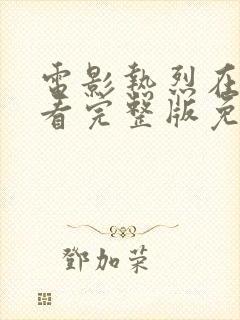 電影熱烈在
看完整版免
鄧加榮